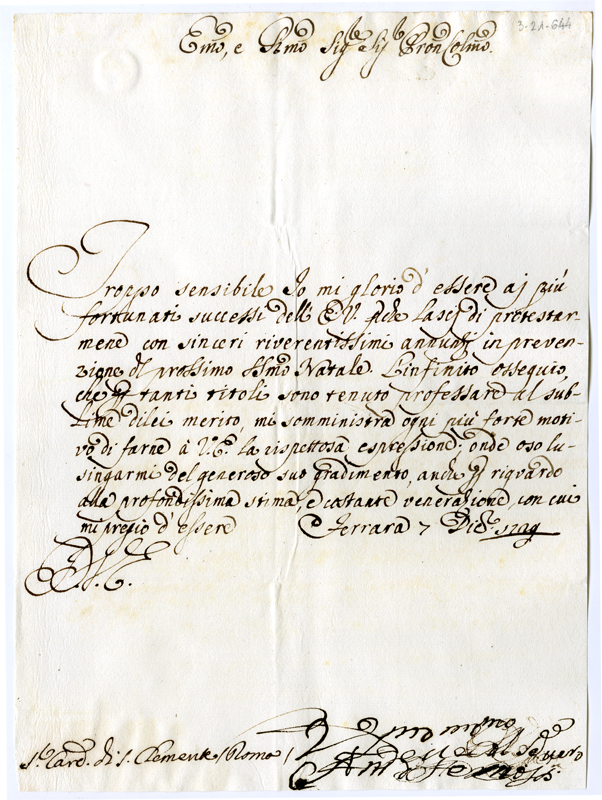 3-21-644
Emo, e Rmo Sige Sigr Pron Colmo.
Troppo sensibile Io mi glorio d'essere aj più
fortunati successi dell'E.V. che lasci di protestar
mene con sinceri riverentissimi annunzj in preven-
zione del prossimo SSmo Natale. L'infinito ossequio,
che per tanti titoli sono tenuto professare al sub-
lime dilei merito, mi somministra ogni più forte moti-
vo di farne à V.E. la rispettosa espressione; onde oso lu-
singarmi del generoso suo gradimento, anche per riguardo
alla profondissima stima, e costante venerazione, con cui
mi pregio d'essere Ferrara 7 Dice.
D.V.E.
Sr Card. di S. Clemente (Roma)